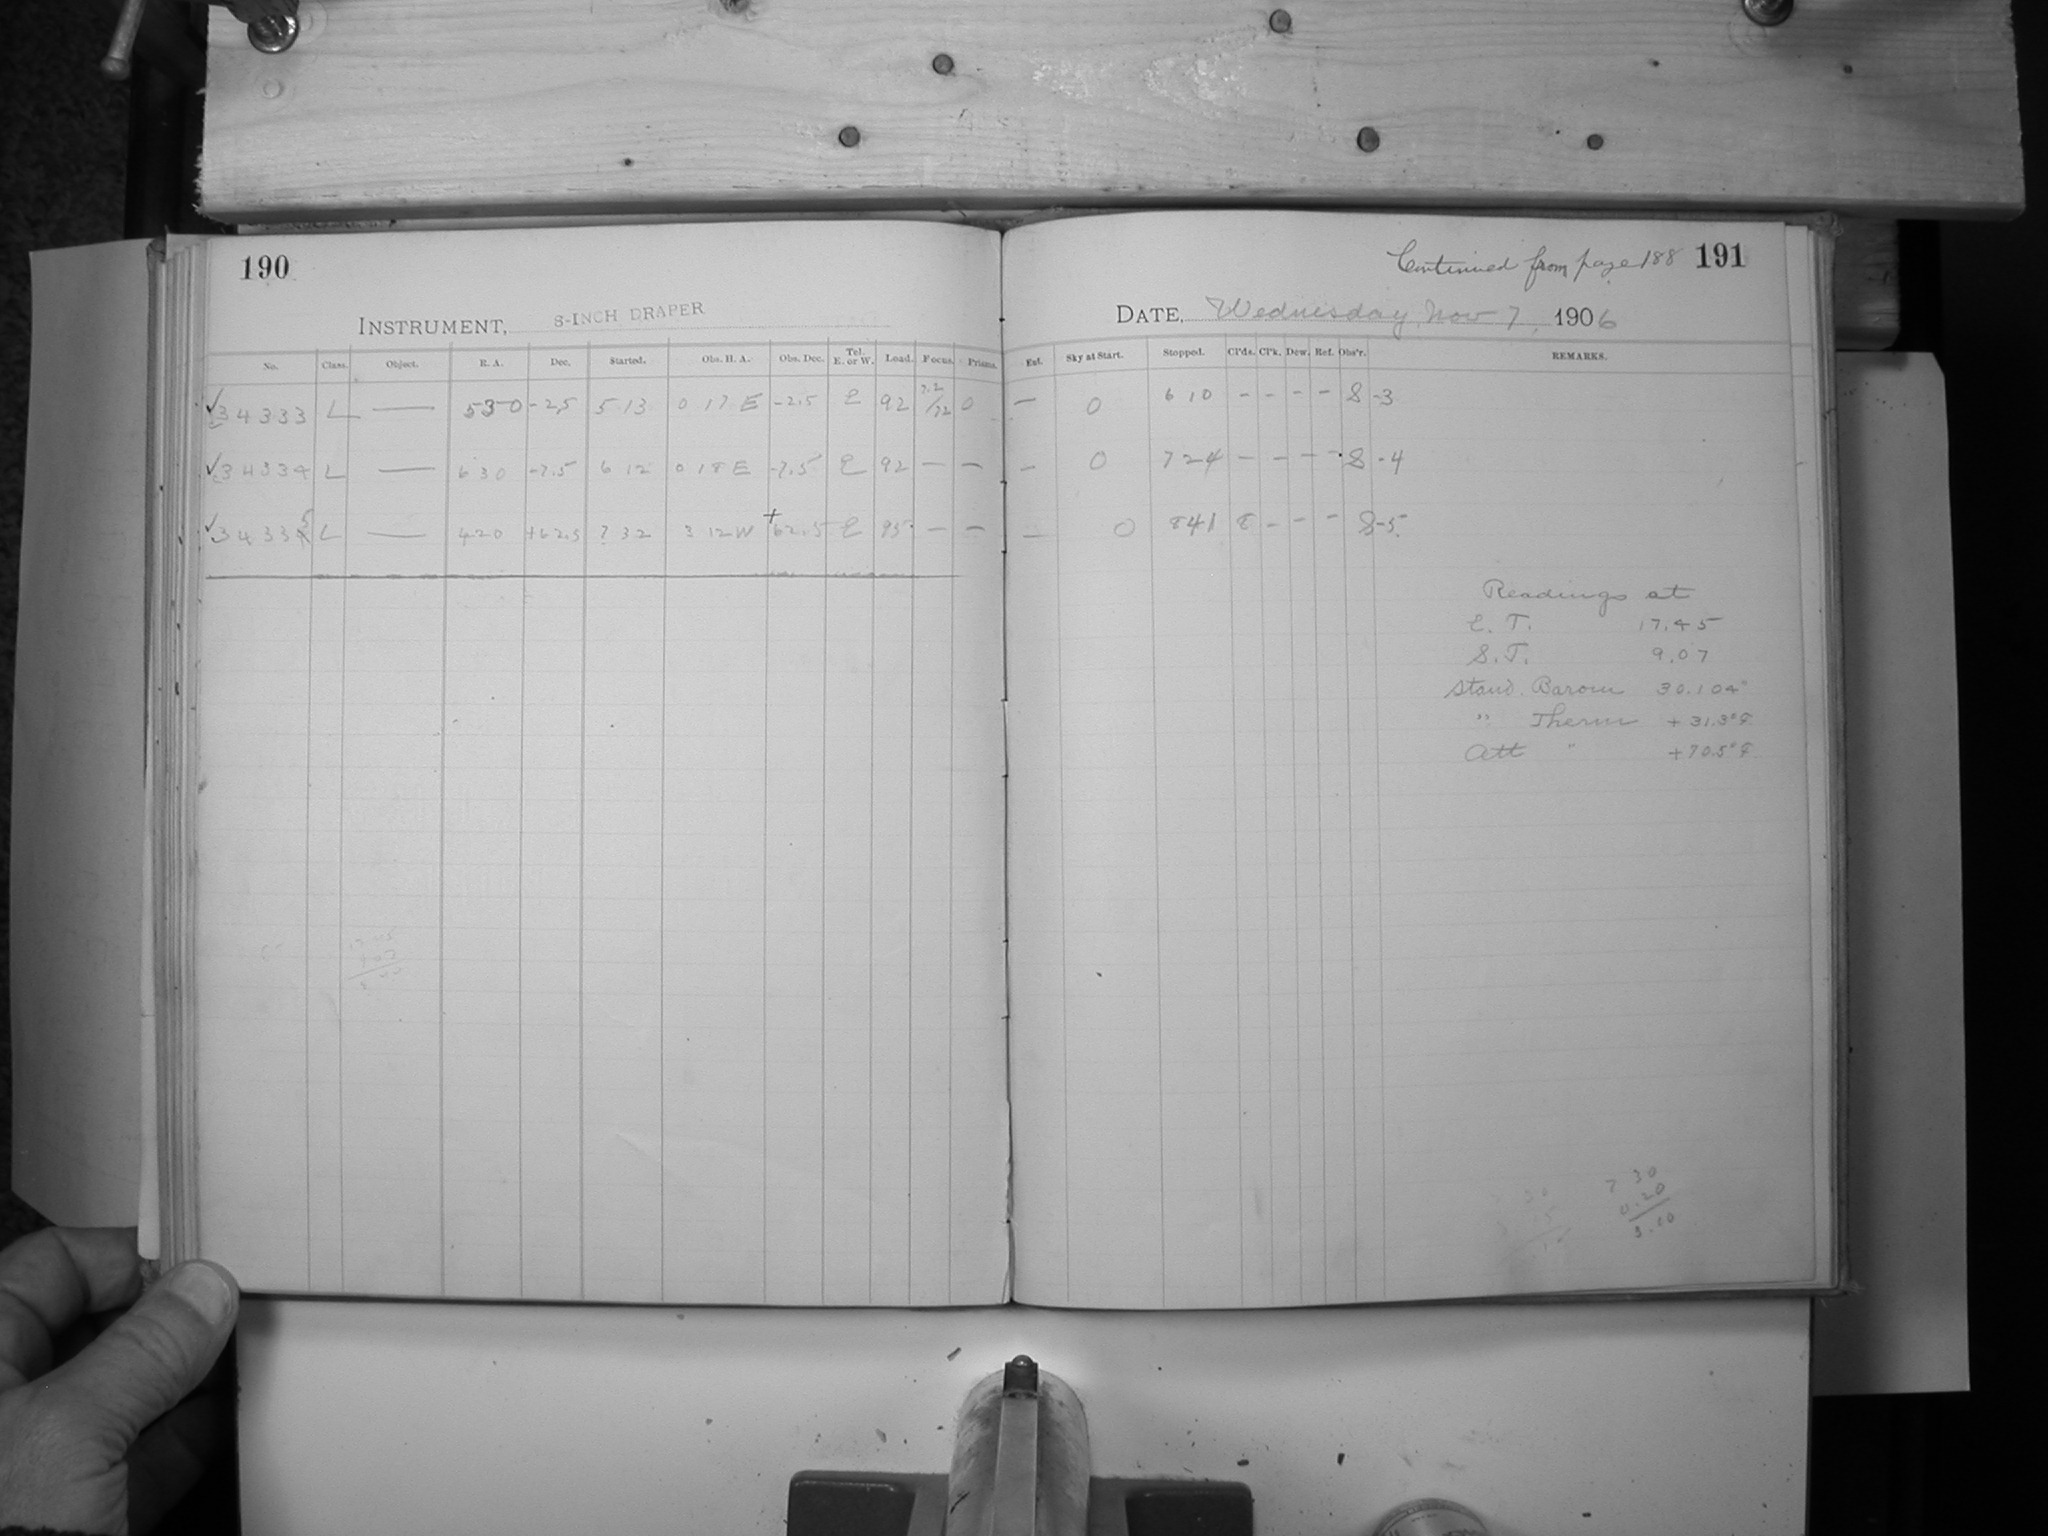 190
INSTRUMENT, 8-INCH DRAPER
No. Class. Object. R. A. Dec. Started. Obs. H. A. Obs. Dec. Tel. E. or W. Load. Focus. Prisms.
✓34333 L — 5 30 -2.5 5 13 0 17 E -2.5 E 92 0
✓34334 L — 6 30 -7.5 6 12 0 18 E -7.5 E 92 — —
✓34335 L — 4 20 +62.5 7 32 3 12 W +62.5 E 95 — —
Continued from page 188 191
DATE, Wednesday, Nov 7, 1906
Ext. Sky at Start. Stopped. Cl'ds. Cl'k. Dew. Ref. Obs'r. REMARKS.
— 0 6 10 - - - - S -3
— 0 7 24 - - - - S -4
— 0 8 41 8 - - - S -5
Readings at
E. T. 17.45
S. T. 9.07
Stand. Barom 30.104"
" Therm + 31.3° F
Att " +70.5° F
7 30
0.20